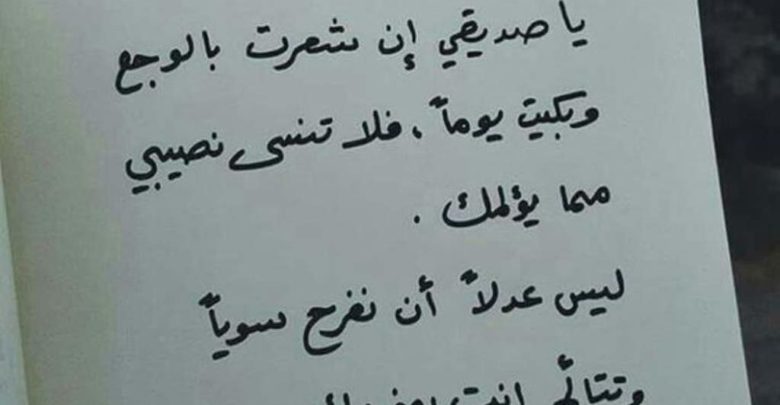 يا صديقي إن شعرت بالوجع
وبكيت يوماً، فلا تنسى نصيبي
مما يؤلمك .
ليس عدلاً أن نفرح سوياً
وتتألم انت